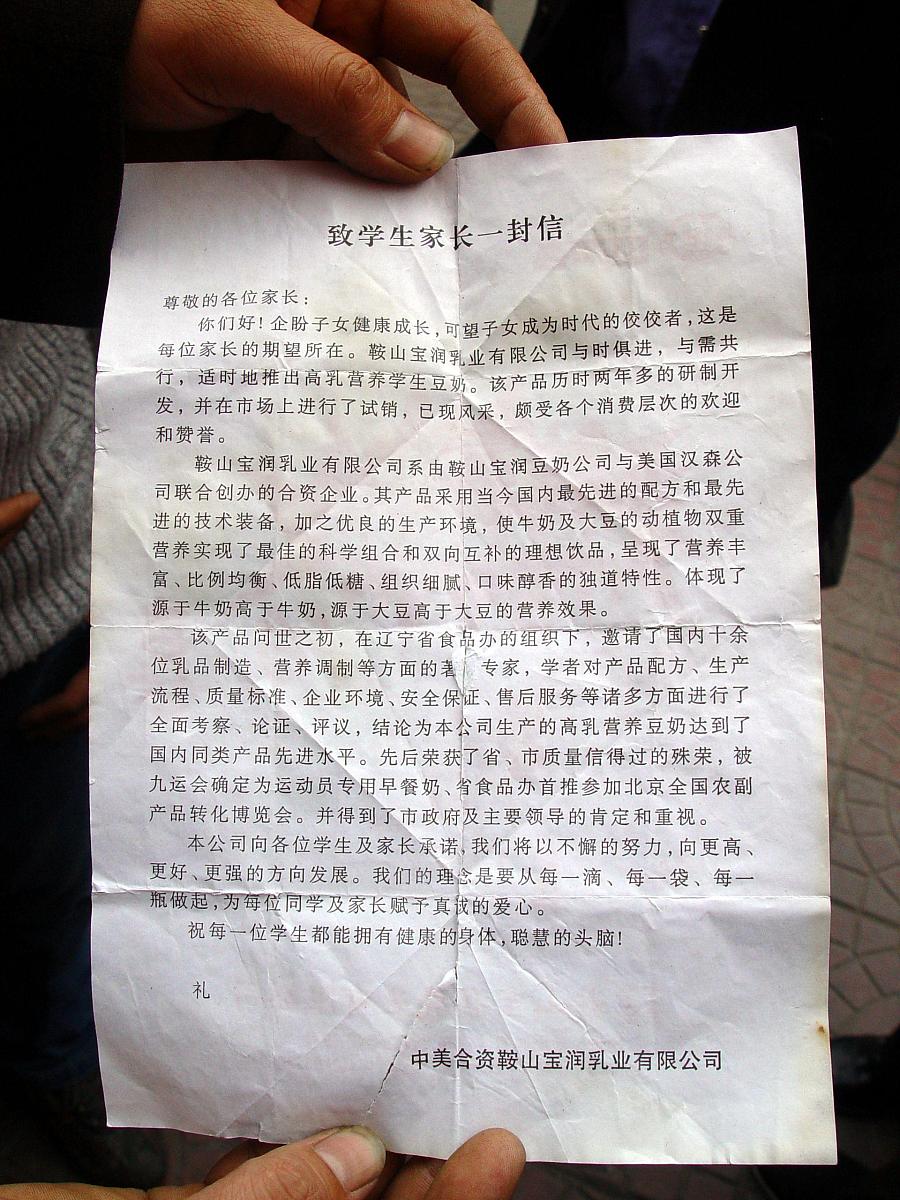 致学生家长一封信
尊敬的各位家长:
你们好!企盼子女健康成长,可望子女成为时代的佼佼者,这是
每位家长的期望所在。鞍山宝润乳业有限公司与时俱进,与需共
行,适时地推出高乳营养学生豆奶。该产品历时两年多的研制开
发,并在市场上进行了试销,已现风采,颇受各个消费层次的欢迎
和赞誉。
鞍山宝润乳业有限公司系由鞍山宝润豆奶公司与美国汉森公
司联合创办的合资企业。其产品采用当今国内最先进的配方和最先
进的技术装备,加之优良的生产环境,使牛奶及大豆的动植物双重
营养实现了最佳的科学组合和双向互补的理想饮品,呈现了营养丰
富、比例均衡、低脂低糖、组织细腻、口味醇香的独道特性。体现了
源于牛奶高于牛奶,源于大豆高于大豆的营养效果。
该产品问世之初,在辽宁省食品办的组织下,邀请了国内十余
位乳品制造、营养调制等方面的著 专家,学者对产品配方、生产
流程、质量标准、企业环境、安全保证、售后服务等诸多方面进行了
全面考察、论证、评议,结论为本公司生产的高乳营养豆奶达到了
国内同类产品先进水平。先后荣获了省、市质量信得过的殊荣,被
九运会确定为运动员专用早餐奶、省食品办首推参加北京全国农副
产品转化博览会。并得到了市政府及主要领导的肯定和重视。
本公司向各位学生及家长承诺,我们将以不懈的努力,向更高、
更好、更强的方向发展。我们的理念是要从每一滴、每一袋、每一
瓶做起,为每位同学及家长赋予真诚的爱心。
祝每一位学生都能拥有健康的身体,聪慧的头脑!
礼
中美合资鞍山宝润乳业有限公司